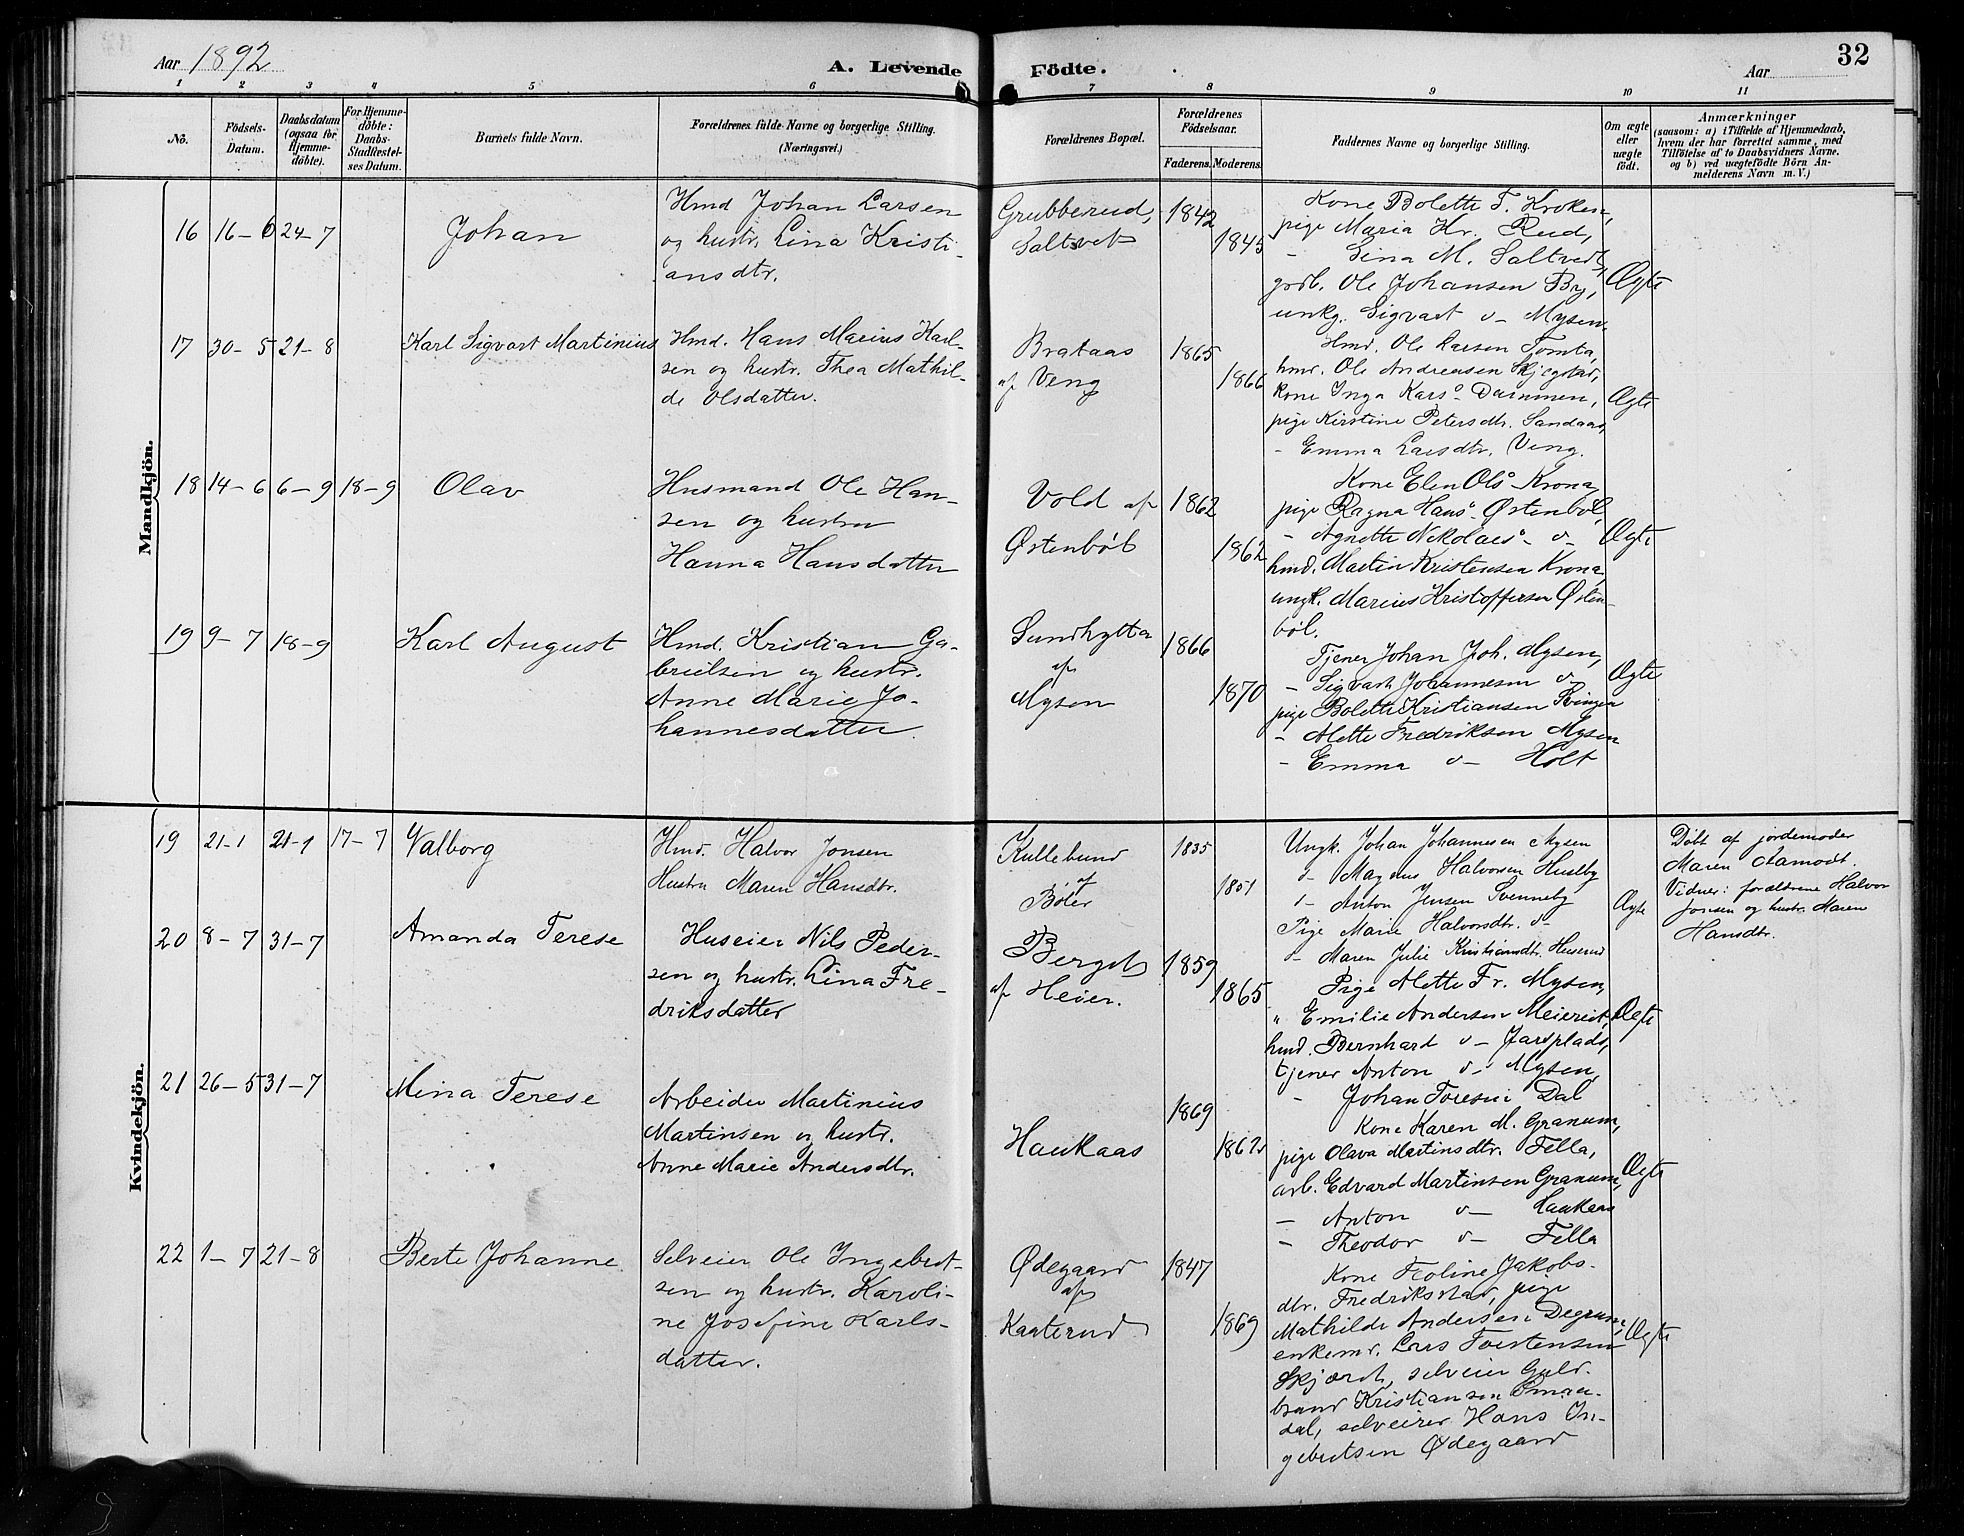 Aar 1892
A. Levende Födte.
Aar
32
1 2 3 4 5 6 7 8 9 10 11
No.
Födsels-Datum.
Daabsdatum (ogsaa for Hjemmedöbte).
For Hjemmedöbte: Daabs-Stadfæstelses Datum.
Barnets fulde Navn.
Forældrenes fulde Navne og borgerlige Stilling. (Næringsvei.)
Forældrenes Bopæl.
Forældrenes Födselsaar.
Faderens. Moderens.
Faddernes Navne og borgerlige Stilling.
Om ægte eller uægte födt.
Anmærkninger
(saasom: a) i Tilfælde af Hjemmedaab,
hvem der har forrettet samme, med
Tilföielse af to Daabsvidners Navne.
og b) ved uægtefödte Börn An-
melderens Navn m. V.)
Mandkjön.
16 16-6 24-7
Johan
Hmd Johan Larsen
og hustr. Lina Kristi-
ansdtr.
Grubberud,
Saltvet
1842
1845
Kone Bolette T. Kroken,
pige Maria Kr. Rud,
- Lina M. Saltvedt,
grdb. Ole Johansen By,
unkg. Sigvart o- Mysen.
Ægte
17 30-5 21-8
Karl Sigvart Martinius
Hmd. Hans Marius Karl-
sen og hustr. Thea Mathil-
de Olsdatter.
Brataas
af Veng
1865
1866
Hmd. Ole Larsen Tomta,
hmd. Ole Andreasen Skjegstad,
kone Inga Kars- Dammen,
pige Kirstine Petersdtr. Sandaas,
- Emma Larsdtr. Veng.
Ægte
18 14-6 6-9 18-9
Olav
Husmand Ole Han-
sen og hustru
Hanna Hansdatter
Vold af
Østenböl
1862
1862
Kone Elen Ols- Krona,
pige Ragna Hans- Østenböl,
- Agnette Nikolais- o-
hmd. Martin Kristensen Krona,
ungk. Marius Kristoffersen Østen-
böl.
Ægte
19 9-7 18-9
Karl August
Hmd. Kristian Ga-
brielsen og hustr.
Anne Marie Jo-
hannesdatter.
Sundhytta
af
Mysen
1866
1870
Tjener Johan Joh. Mysen,
- Sigvart Johannesen o-
pige Bolette Kristiansen Svingen
- Alette Fredriksen Mysen
- Emma o- Holt
Ægte
Kvindekjön.
19 21-1 21-1 17-7
Valborg
Hmd. Halvor Jonsen
Hustru Maren Hansdtr.
Kullebund
af
Böler
1835
1851
Ungk. Johan Johannesen Mysen
o- Magnus Halvorsen Huseby
o- Anton Jensen Svenneby
Pige Marie Halvorsdtr. o-
o- Maren Julie Kristiansdtr. Huserud
Ægte
Döbt af jordemoder
Maren Aamodt.
Vidner: forældrene Halvor
Jonsen og hustr. Maren
Hansdtr.
20 8-7 31-7
Amanda Terese
Huseier Nils Peder-
sen og hustr. Lina Fre-
driksdatter
Berget
af Heier.
1859
1865
Pige Alette Fr. Mysen,
" Emilie Andersen Meieriet,
hmd. Bernhard o- Jarsplads,
tjener Anton o- Mysen,
- Johan Toresen Dal
Ægte
21 26-5 31-7
Mina Terese
Arbeider Martinius
Martinsen og hustr.
Anne Marie Andersdtr.
Haukaas
1869
1862
Kone Karen M. Granum,
pige Olava Martinsdtr. Fella,
arb. Edvard Martinsen Granum,
- Anton o- Haukaas
- Theodor o- Fella
Ægte
22 1-7 21-8
Berte Johanne
Selveier Ole Ingebret-
sen og hustr. Karoli-
ne Josefine Karls-
datter.
Ødegaard
af
Kaaterud
1847
1869
Kone Eoline Jakobs-
dtr. Fredriksstad, pige
Mathilde Andersen Degrum,
enkemd. Lars Torstensen
Skjærdt, selveier Guld-
brand Kristiansen
dal, selveier Hans In-
gebretsen Ødegaard
Ægte